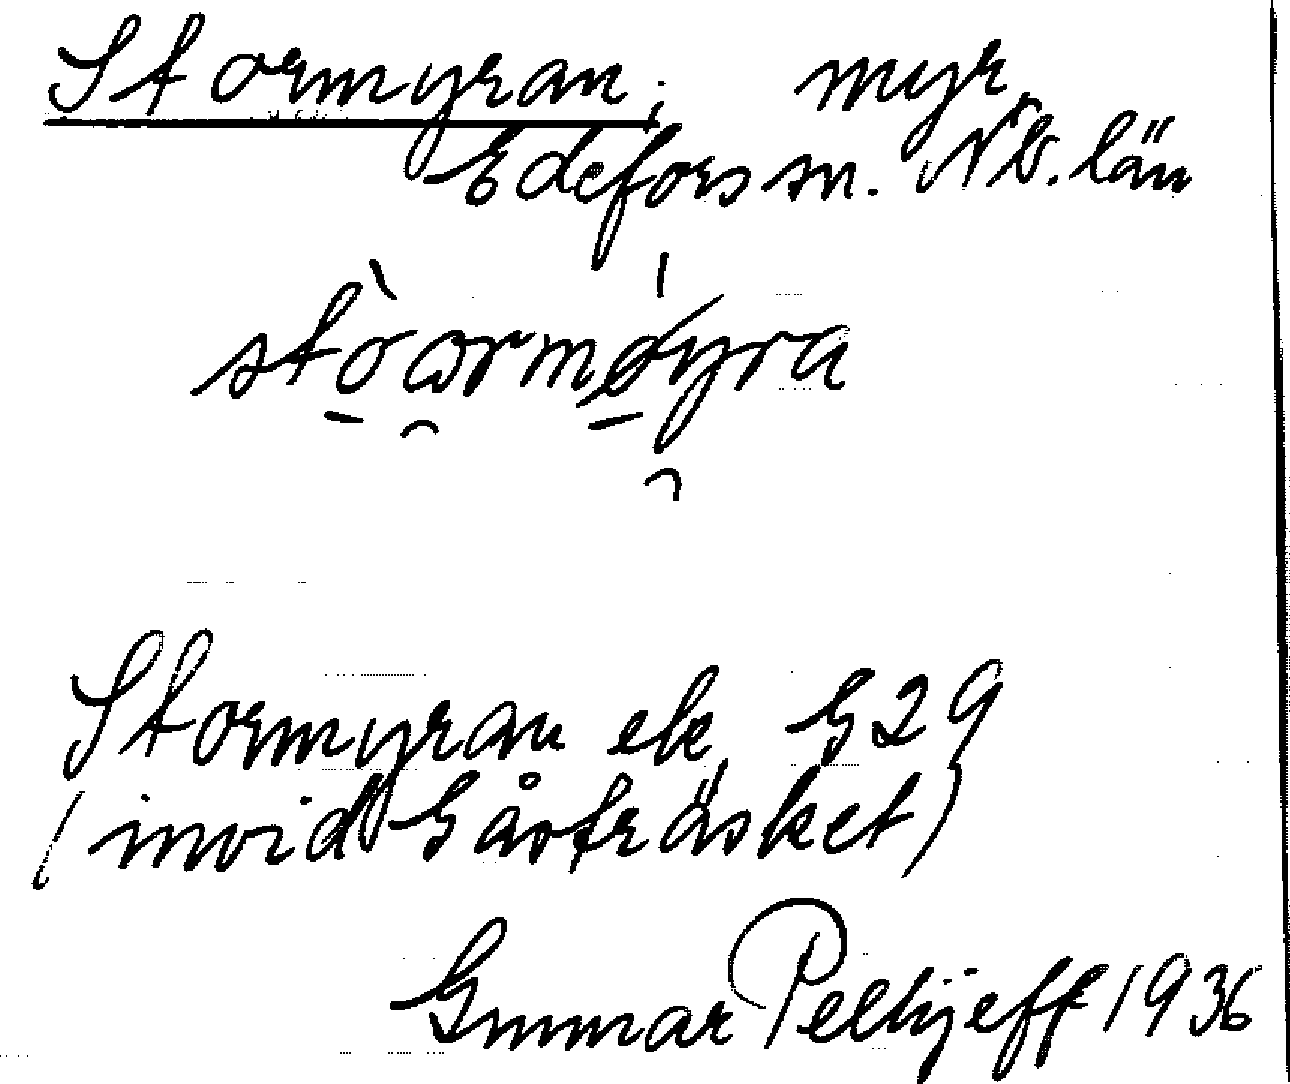 Stormyran, myr,
Edefors sn. Nb. län
stòɷrmøyra
Stormyran ek. G29
(invid Gåsträsket)
Gunnar Pellijeff 1936